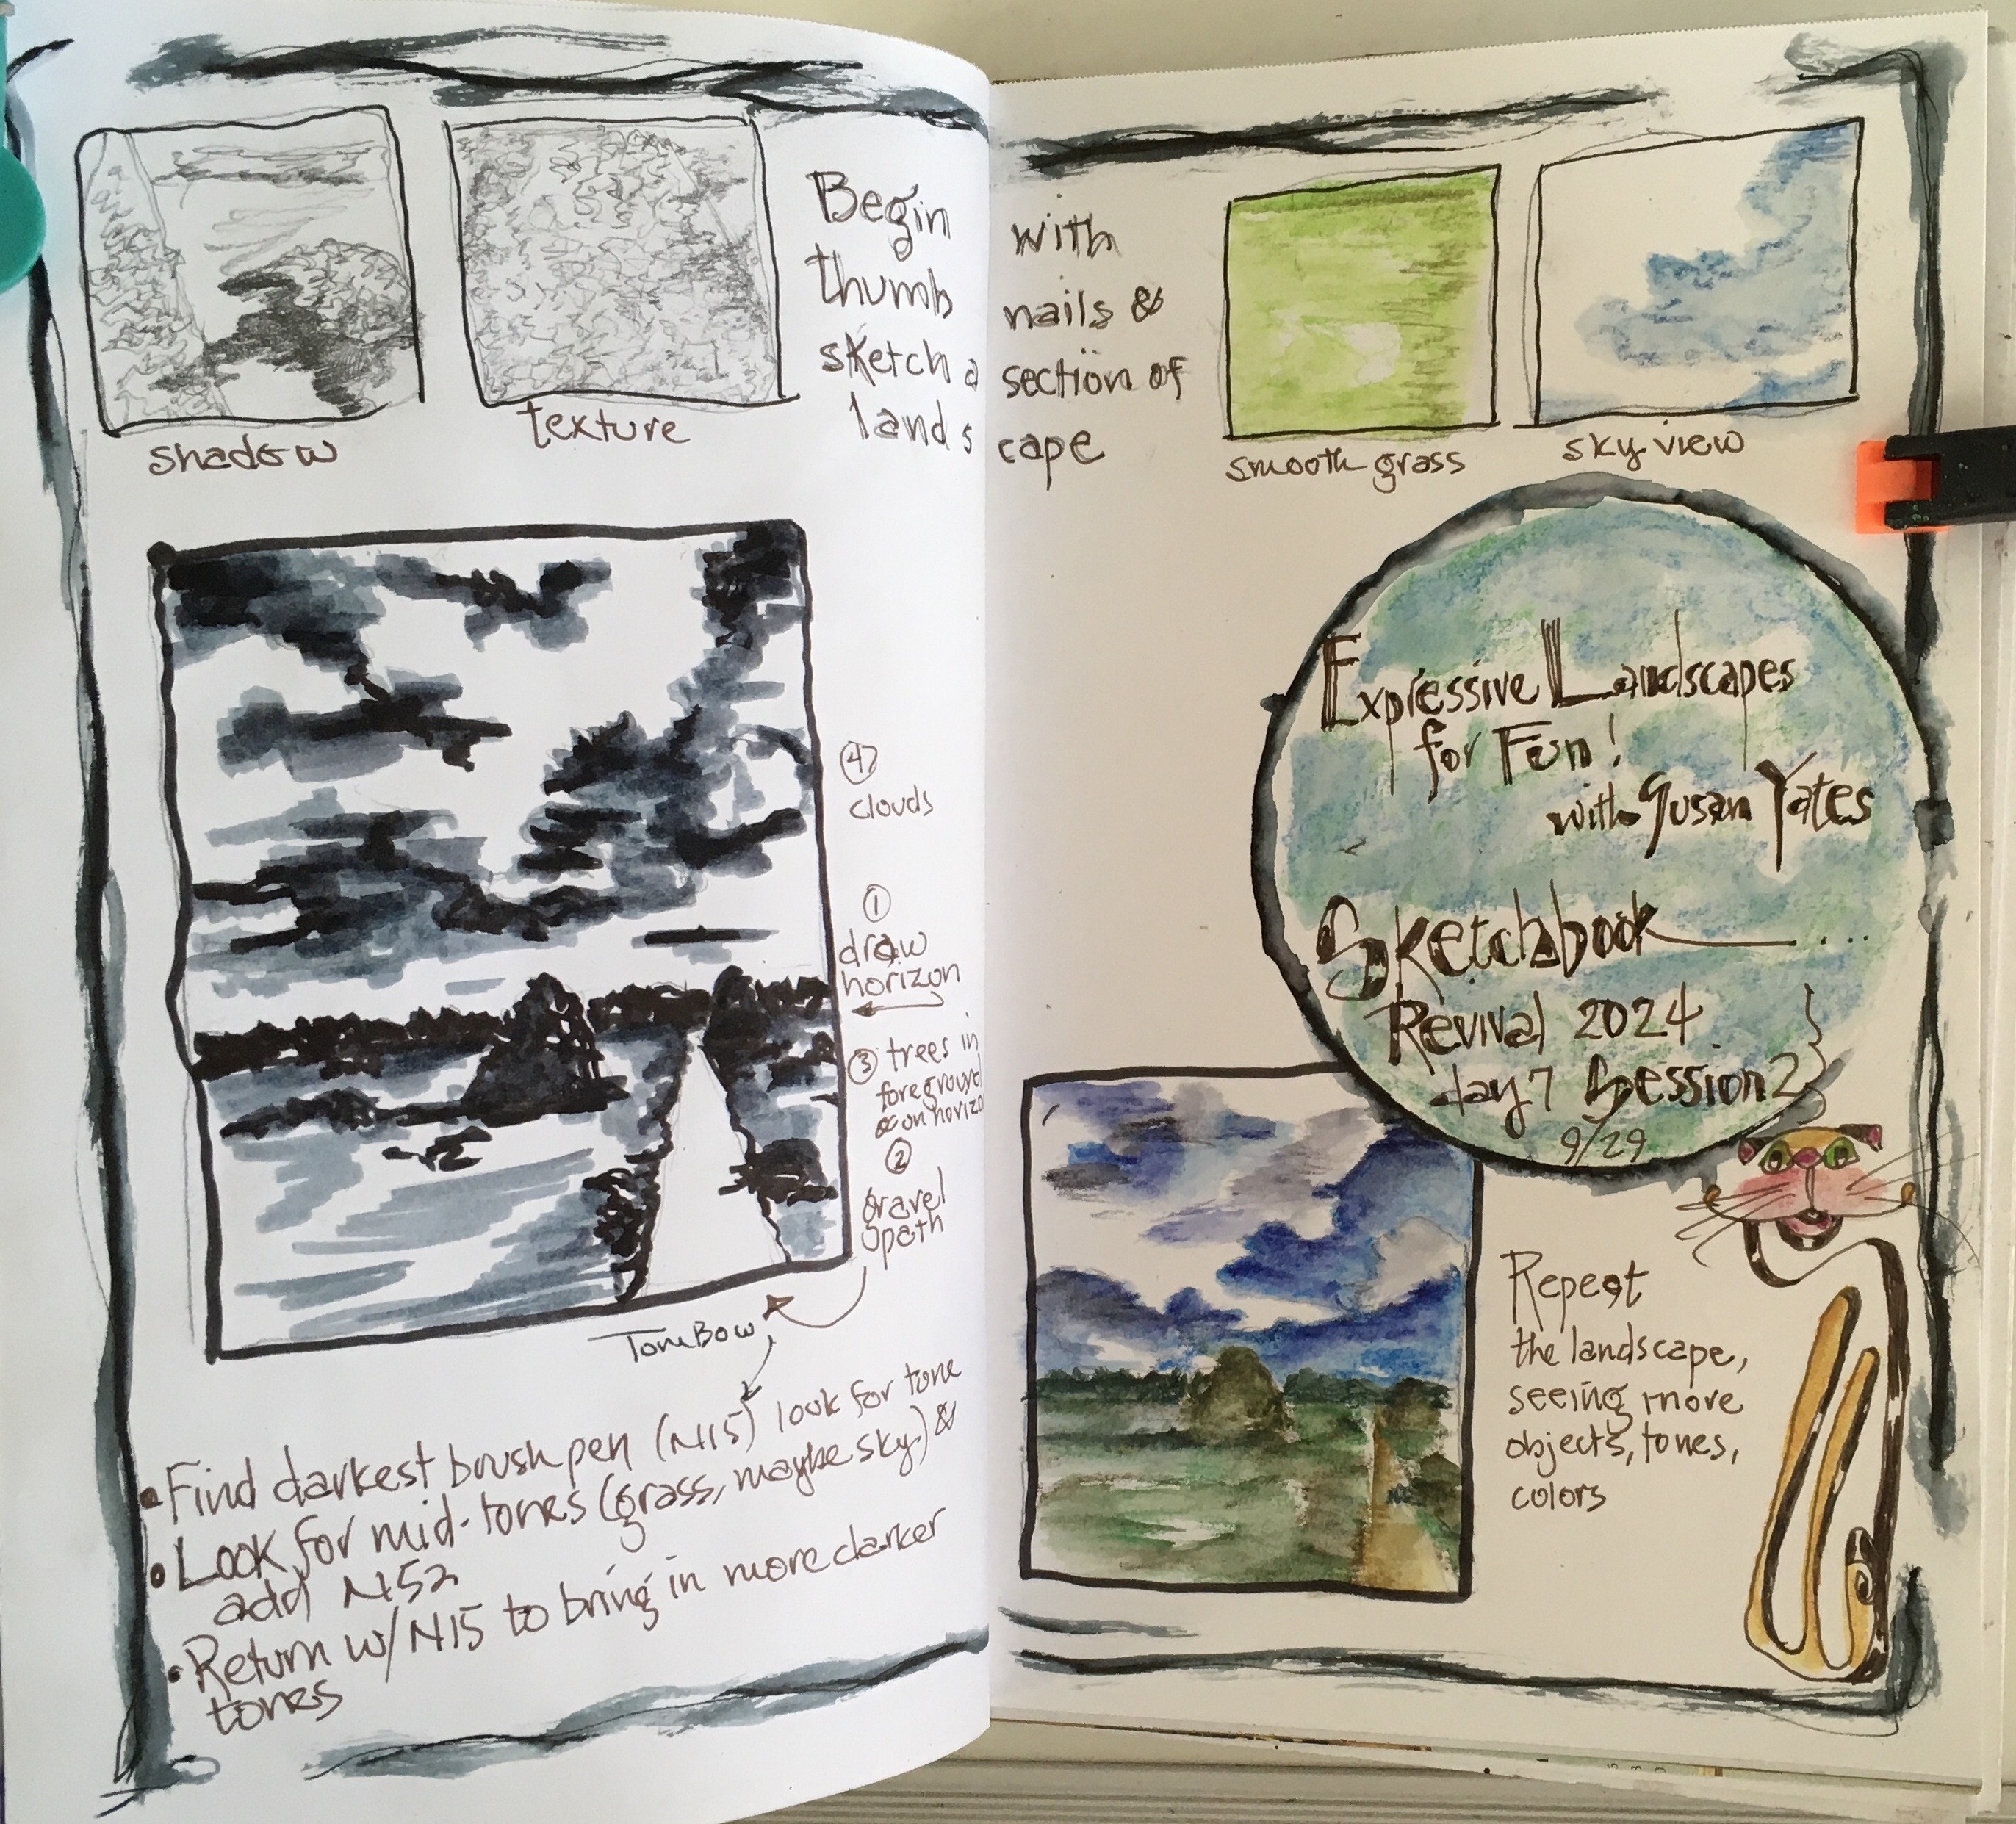 Begin with
thumb nails &
sketch a section of
lands cape
shadow
texture
smooth grass
sky view
④
clouds
①
draw
horizon
③ trees in
foreground
& on horizo
②
Gravel
path
TomBow
• Find darkest brush pen (N15) look for tone
• Look for mid-tones (grass, maybe sky) &
add N52
• Return w/ N15 to bring in more darker
tones
Expressive Landscapes
for Fun!
with Susan Yates
Sketchbook
Revival 2024
day 7 Session 2
9/29
Repeat
the landscape,
seeing more
objects, tones,
colors